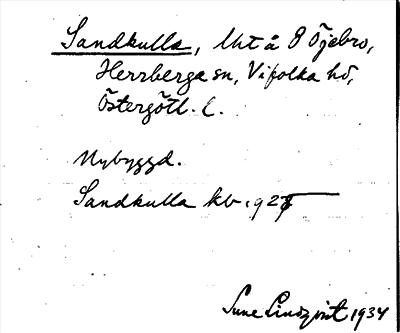 Sandkulla, lht å 8 Öjebro,
Herrberga sn, Vifolka hd,
Östergötl. l.
Nybyggd.
Sandkulla kb
Sune Lindqvist 1934